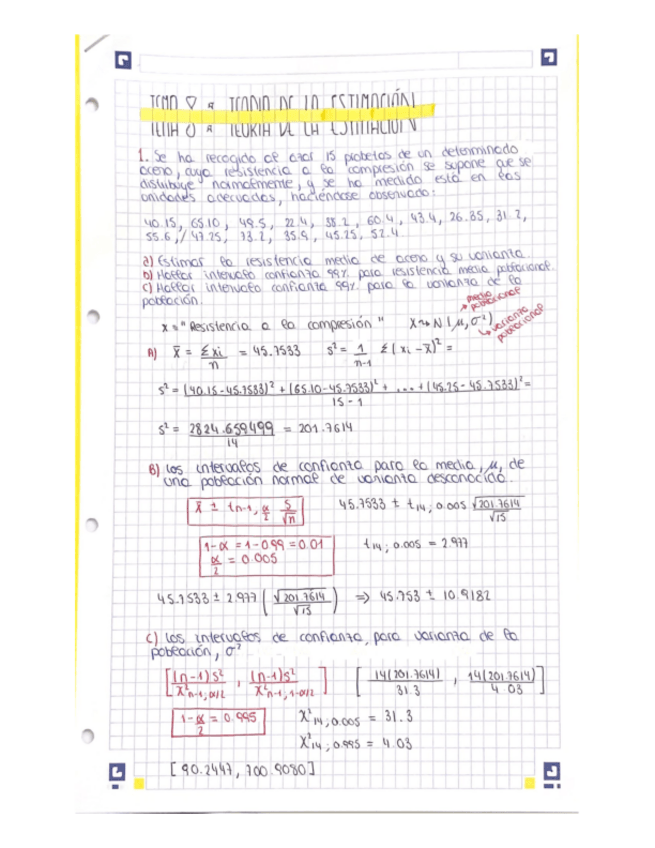 TEMA 8: TEORIA DE LA ESTIMACIÓN
1. Se ha recogido al azar 15 probetas de un determinado
acero, cuya resistencia a la compresión se supone que se
distribuye normalmente, y se ha medido esta en las
unidades adecuadas, haciéndose observado:
40.15, 65.10, 49.5, 22.4, 38.2, 60.4, 43.4, 26.35, 31.2,
55.6, 47.25, 73.2, 35.9, 45.25, 52.4
a) Estimar la resistencia media de acero y su varianza.
b) Hallar intervalo confianza 99% para resistencia media poblacional.
c) Hallar intervalo confianza 99% para la varianza de la
población.
media poblacional
X = "Resistencia a la compresión" X ~ N (μ, σ²)
varianza poblacional
A) x̄ = Σxi / n = 45.7533 s² = 1 / n-1 Σ(xi - x̄)² =
s² = (40.15-45.7533)² + (65.10-45.7533)² + ... + (45.25-45.7533)² =
15-1
s² = 2824.659499 / 14 = 201.7614
B) Los intervalos de confianza para la media, μ, de
una población normal de varianza desconocida.
x̄ ± tn-1, α/2 S/√n 45.7533 ± t14; 0.005 √201.7614 / √15
1-α = 1-0.99 = 0.01 t14; 0.005 = 2.977
α/2 = 0.005
45.7533 ± 2.977 (√201.7614 / √15) ⇒ 45.753 ± 10.9182
C) Los intervalos de confianza, para varianza de la
población, σ²
[(n-1)S² / X²n-1, α/2 , (n-1)S² / X²n-1, 1-α/2] [14(201.7614) / 31.3 , 14(201.7614) / 4.03]
1-α/2 = 0.995 X²14; 0.005 = 31.3
X²14; 0.995 = 4.03
[90.2447, 700.9080]